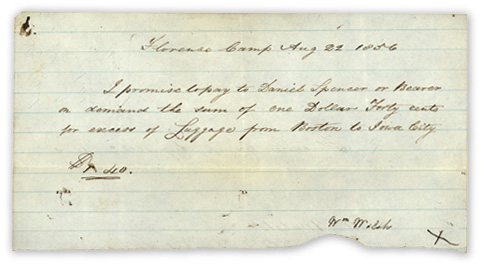 Florence Camp Aug 22 1856
I promise to pay to Daniel Spencer or Bearer
on demand the sum of one Dollar Forty cents
for excess of Luggage from Boston to Iowa City
$1.40.
Wm Welsh
X